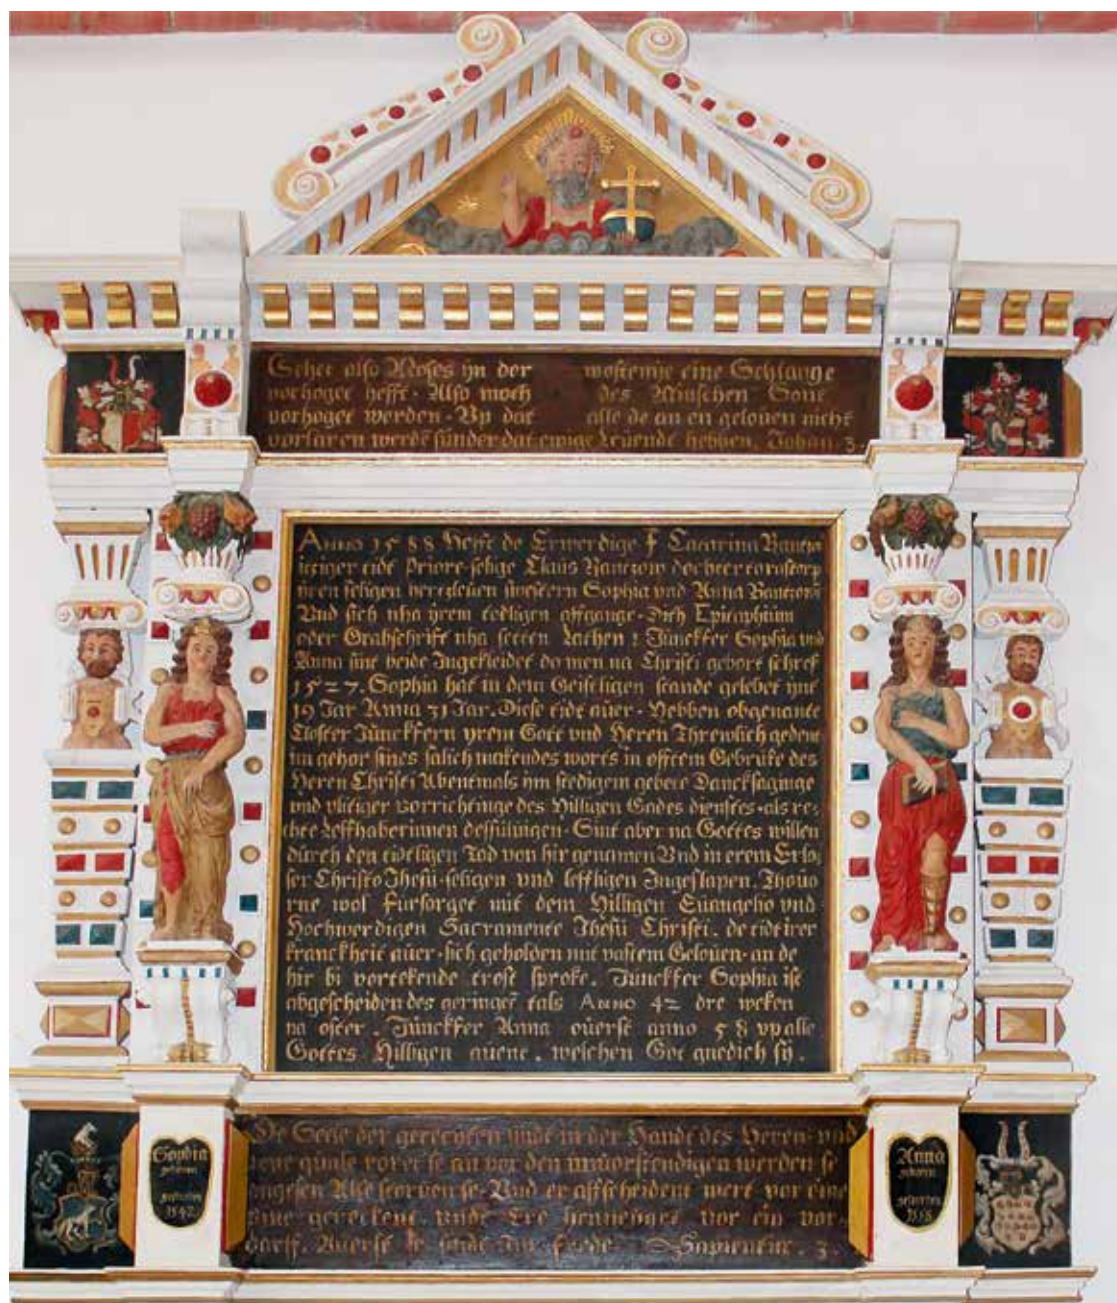 Schet also Moses yn der wostenye eine Schlange
vorhoget hefft. Also moth des Minschen Sone
vorhoget werden. Vp dat alle de an en gelouen nicht
vorlaren werdē sünder dat ewige Leüendt hebben. Johan. 3.
Anno 1588 Hefft de Erwerdige F Catarina Rantzow
itziger tidt Priore selige Claüs Rantzow dochter
yren seligen hertzleuen süestern Sophia vnd Anna Rantzow
Vnd sich nha yrem tödtligen affgange. Dith Epitaphium
oder Grabschrift nha setten Lathen: Jünckfer Sophia vnd
Anna sint beide Ingekleidet do men na Christi gebort schref
1527. Sophia hat in dem Geistligen stande gelebet ynt
19 Jar Anna 31 Jar. Diese tidt aüer. Hebben obgenante
Closter Jünckfern yrem Gott vnd Heren Threwlich gedent
im gehor sines salich makendes wordes in offtem Gebruke des
Heren Christi Abentmals ym stedigem gebete Dancksaginge
vnd vlitiger vorrichtinge des Hilligen Gades dienstes. als re-
chte Leffhaberinnen dessüluigen. Sint aber na Gottes willen
dürch den tidtligen Tod von hir genamen Vnd in erem Erlo-
ser Christo Jhesü. seligen vnd leffligen Ingeslapen. Thouo
rne wol Fürsorget mit dem Hilligen Euangelio vnd
Hochwerdigen Sacramente Jhesü Christi. de tidt irer
kranckheit aüer. sich geholden mit vastem Geloüen. an de
hir bi vortekende trost sproke. Jünckfer Sophia ist
abgescheiden des geringer tals Anno 42 dre weken
na oster. Jünckfer Anna oüerst anno 58 vp alle
Gottes Hilligen auent. welchen Got gnedich sy.
Sophia
geboren
gestorben
1542
De Seele der gerechten sindt in der Hande des Heren. vnd
kene quale roret se an vor den vnuorstendigen werden se
angesen Alse storven se. Vnd er affscheident wert vor eine
pine gerekent. vndt Ere henneuart vor ein vor-
darff. Auerst se sindt im frede. Sapientiæ. 3.
Anna
geboren
gestorben
1558